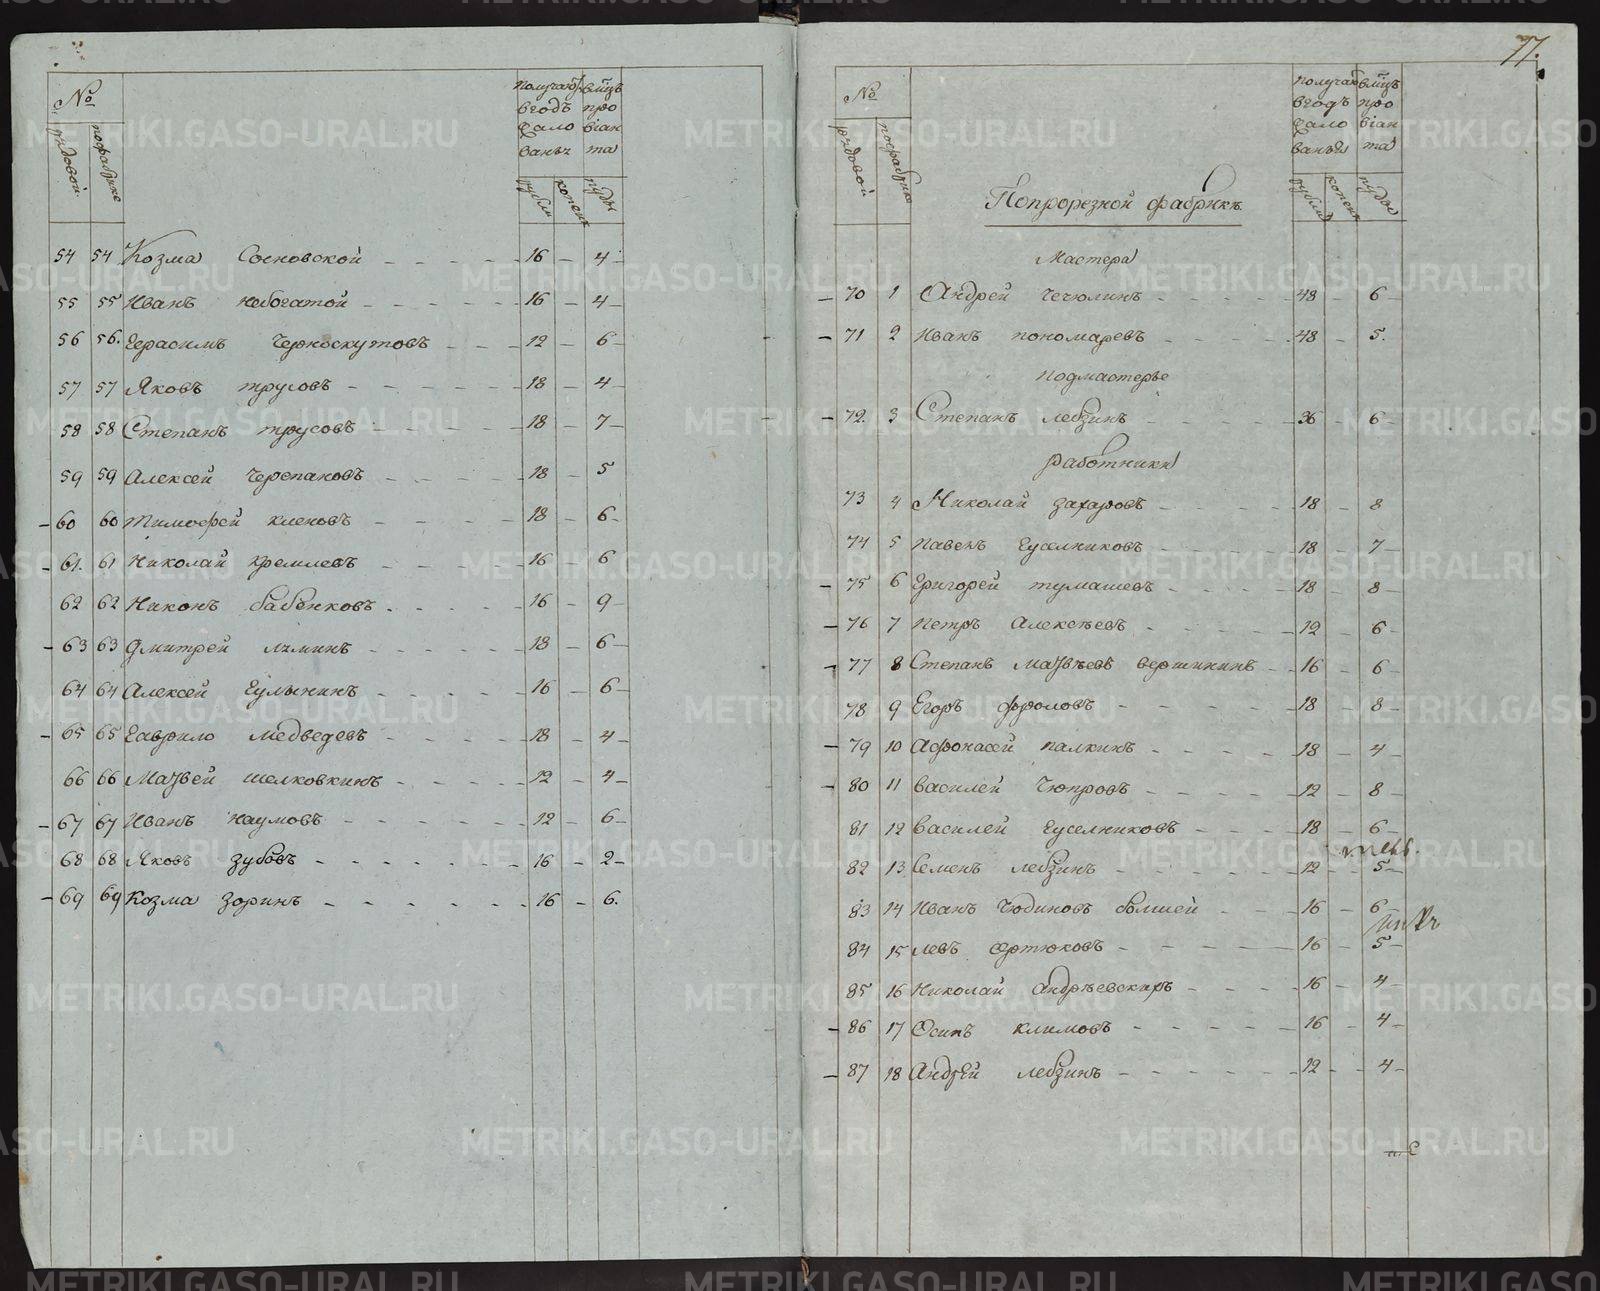 №
рядовой
по фабрике
Получаютъ
вгодъ
жало
ванья
вмцъ
про
віан
та
рубли
копеик
пуды
54 54 Козма Сосновской - - - - - 16 - 4
55 55 Иванъ небогатой - - - - - 16 - 4 -
56 56. Герасимъ Черноскутовъ - - - 12 - 6 -
57 57 Яковъ трусовъ - - - - - 18 - 4 -
58 58 Степанъ трусовъ - - - - - 18 - 7 -
59 59 Алексей Черепановъ - - - - 18 - 5
- 60 60 Тимофей кленовъ - - - - 18 - 6 -
- 61. 61 Николай кремлевъ - - - - 16 - 6
62 62 Никонъ бабенковъ - - - - 16 - 9 -
- 63 63 Дмитрей - - - - - 18 - 6 -
64 64 Алексей - - - - - 16 - 6 -
- 65 65 Гаврило медведевъ - - - - 18 - 4 -
66 66 Матвей шелковкинъ - - - - 12 - 4 -
- 67 67 Иванъ наумовъ - - - - - 12 - 6 -
68 68 Яковъ зубовъ - - - - - - 16 - 2 -
- 69 69 Козма зоринъ - - - - - - 16 - 6.
77.
№
рядовой
по фабрике
Получаютъ
вгодъ
жало
ванья
вмцъ
про
віан
та
рубли
копеик
пуды
Попрорезной фабрикѣ
Мастера
- 70 1 Андрей Чечюлинъ - - - - 48 - 6 -
- 71 2 Иванъ пономаревъ - - - - 48 - 5.
подмастерье
- 72. 3 Степанъ лебзинъ - - - - - 36 - 6 -
работники
73 4 Николай захаровъ - - - - 18 - 8
74 5 Павелъ Гуселниковъ - - - - 18 - 7 -
- 75 6 Григорей тумашевъ - - - - 18 - 8 -
- 76 7 Петръ Алексѣевъ - - - - 12 - 6 -
- 77 8 Степанъ Матвѣевъ вершининъ - 16 - 6
78 9 Егоръ фроловъ - - - - - 18 - 8 -
- 79 10 Афонасей палкинъ - - - - 18 - 4 -
- 80 11 Василей Чюпровъ - - - - - 12 - 8 -
81 12 Василей Гуселниковъ - - - 18 - 6 -
82 13 Семенъ лебзинъ - - - - - 12 - 5 -
83 14 Иванъ Чюдиновъ болшей - - - 16 - 6 -
84 15 левъ Ортюковъ - - - - - 16 - 5 -
85 16 Николай - - - - 16 - 4 -
- 86 17 Осипъ климовъ - - - - - 16 - 4 -
- 87 18 Андрей лебзинъ - - - - - 12 - - 4 -
METRIKI.GASO-URAL.RU